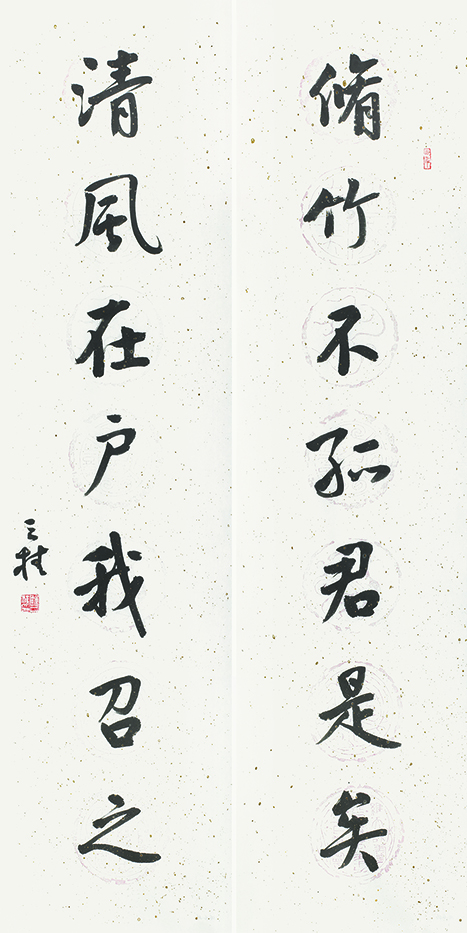 脩竹不孤君是矣
清風在户我召之